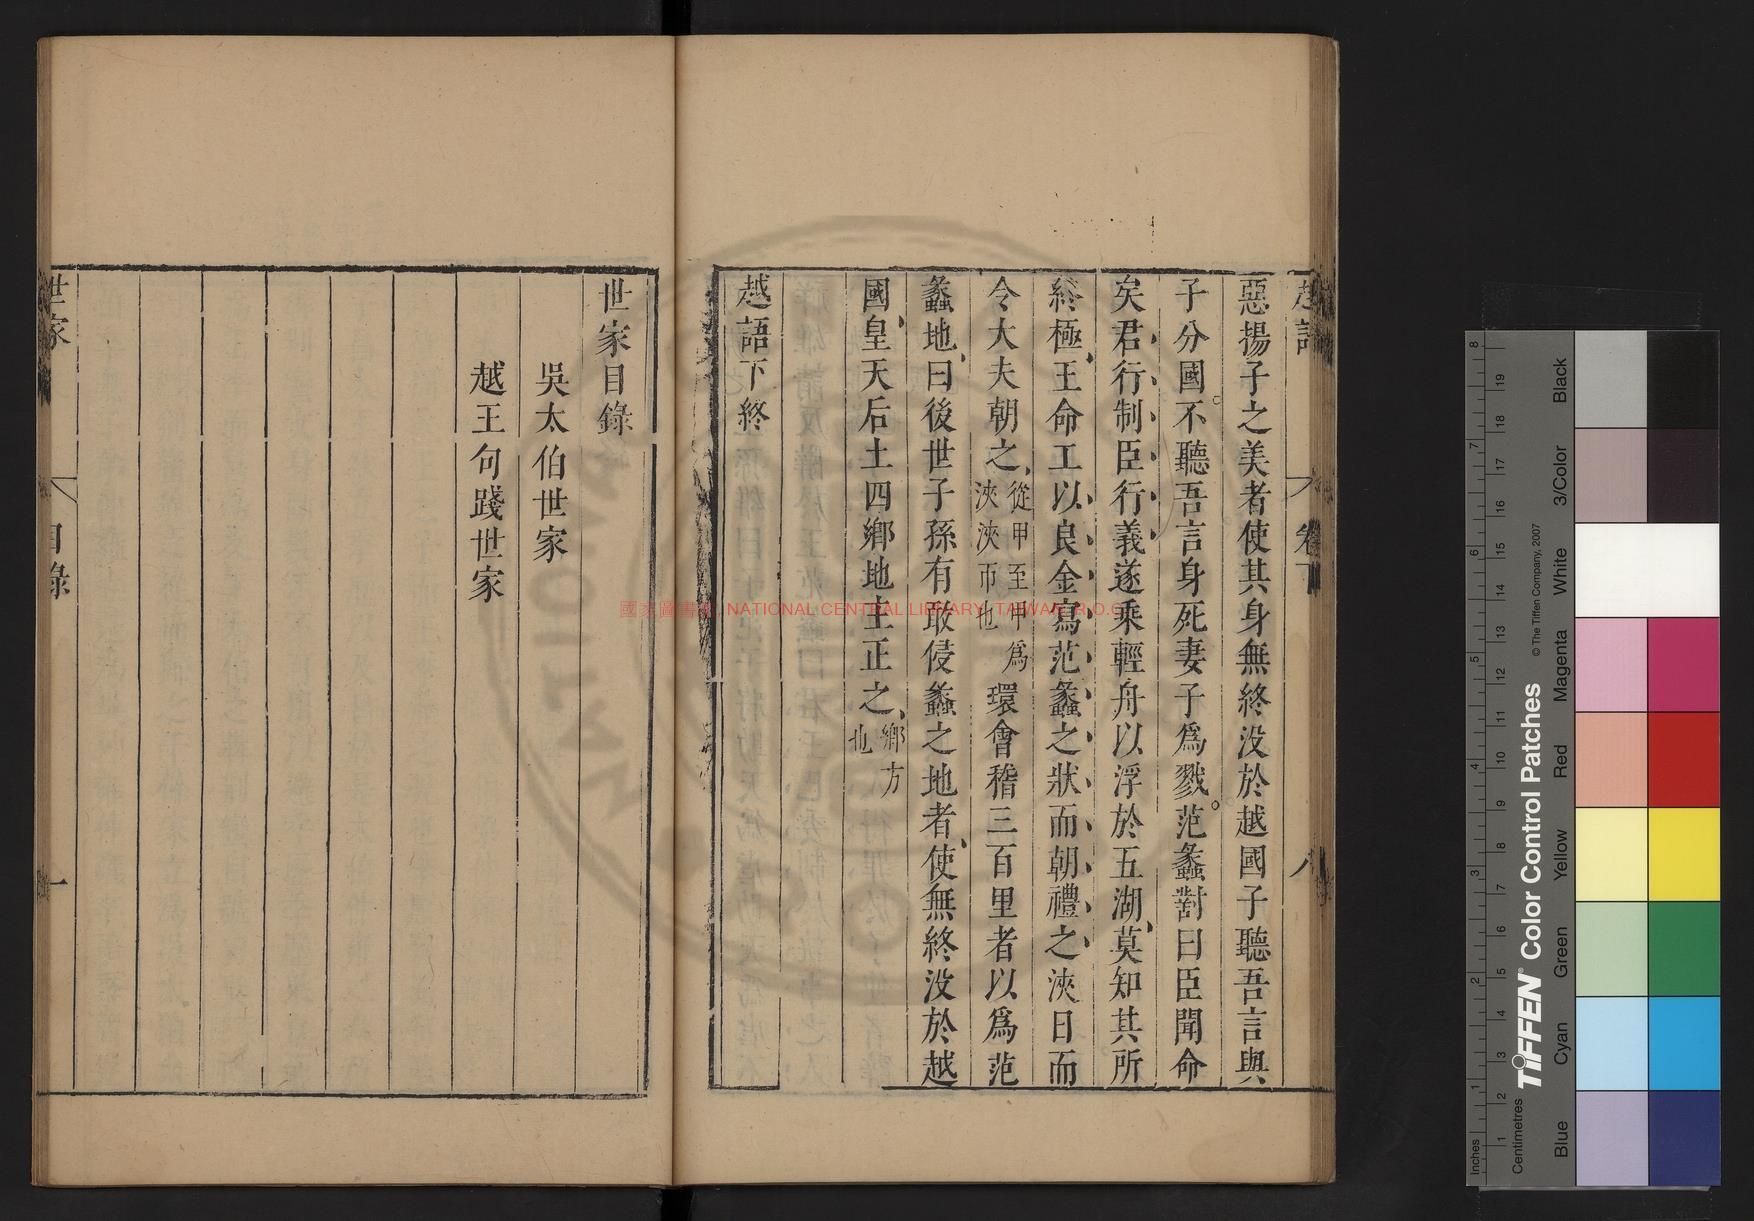 惡揚子之美者使其身無終没於越國子聽吾言與
子分國不聽吾言身死妻子爲戮范蠡對曰臣聞命
矣君行制臣行義遂乘輕舟以浮於五湖莫知其所
終極王命工以良金寫范蠡之狀而朝禮之浹日而
令大夫朝之從甲至甲爲浹浹帀也環會稽三百里者以爲范
蠡地曰後世子孫有敢侵蠡之地者使無終没於越
國皇天后土四鄉地主正之鄉方也
越語下終
世家目錄
吳太伯世家
越王句踐世家
世家
目錄
一
國家圖書館 NATIONAL CENTRAL LIBRARY, TAIWAN, R.O.C
Inches
Centimetres
TIFFEN Color Control Patches
© The Tiffen Company, 2007
Blue
Cyan
Green
Yellow
Red
Magenta
White
3/Color
Black